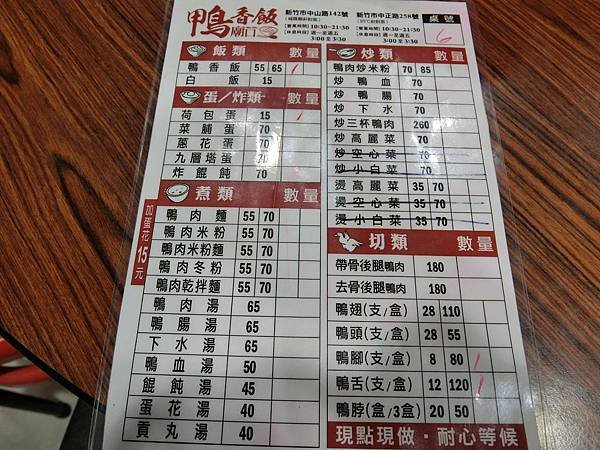 鴨香飯
廟口
新竹市中山路142號
(城隍廟斜對面)
【營業時間】10:30~21:30
【休息時段】週一至週五
3:00 至 3:30
新竹市中正路258號
【營業時間】10:30~21:30
【休息時段】週一至週五
3:00 至 3:30
桌號
6
飯類 數量
鴨香飯 55 65
白飯 15
蛋/炸類 數量
荷包蛋 15
菜脯蛋 70
蔥花蛋 70
九層塔蛋 70
炸餛飩 70
煮類 數量
加蛋花15元
鴨肉麵 55 70
鴨肉米粉 55 70
鴨肉米粉麵 55 70
鴨肉冬粉 55 70
鴨肉乾拌麵 55 70
鴨肉湯 65
鴨腸湯 65
下水湯 65
鴨血湯 50
餛飩湯 45
蛋花湯 40
貢丸湯 40
炒類 數量
鴨肉炒米粉 70 85
炒鴨血 70
炒鴨腸 70
炒下水 70
炒三杯鴨肉 260
炒高麗菜 70
炒空心菜 70
炒小白菜 70
燙高麗菜 35 70
燙空心菜 35 70
燙小白菜 35 70
切類 數量
帶骨後腿鴨肉 180
去骨後腿鴨肉 180
鴨翅(支/盒) 28 110
鴨頭(支/盒) 28 55
鴨腳(支/盒) 8 80
鴨舌(支/盒) 12 120
鴨脖(盒/3盒) 20 50
現點現做・耐心等候